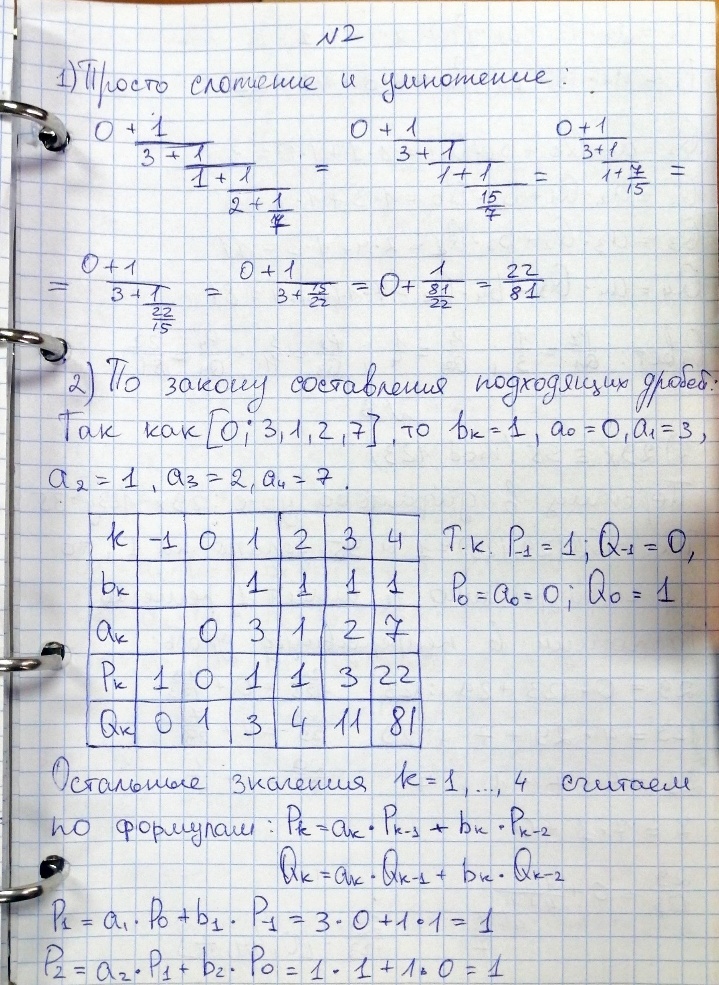 №2
1) Просто сложение и умножение:
0 + 1/(3 + 1/(1 + 1/(2 + 1/7))) = 0 + 1/(3 + 1/(1 + 1/(15/7))) = 0 + 1/(3 + 1/(1 + 7/15)) =
= 0 + 1/(3 + 1/(22/15)) = 0 + 1/(3 + 15/22) = 0 + 1/(81/22) = 22/81
2) По закону составления подходящих дробей:
Так как [0; 3, 1, 2, 7], то bₖ = 1, a₀ = 0, a₁ = 3,
a₂ = 1, a₃ = 2, a₄ = 7.
k -1 0 1 2 3 4
bₖ 1 1 1 1
aₖ 0 3 1 2 7
Pₖ 1 0 1 1 3 22
Qₖ 0 1 3 4 11 81
Т.к. P₋₁ = 1; Q₋₁ = 0,
P₀ = a₀ = 0; Q₀ = 1
Остальные значения k = 1, ..., 4 считаем
по формулам: Pₖ = aₖ · Pₖ₋₁ + bₖ · Pₖ₋₂
Qₖ = aₖ · Qₖ₋₁ + bₖ · Qₖ₋₂
P₁ = a₁ · P₀ + b₁ · P₁ = 3 · 0 + 1 · 1 = 1
P₂ = a₂ · P₁ + b₂ · P₀ = 1 · 1 + 1 · 0 = 1